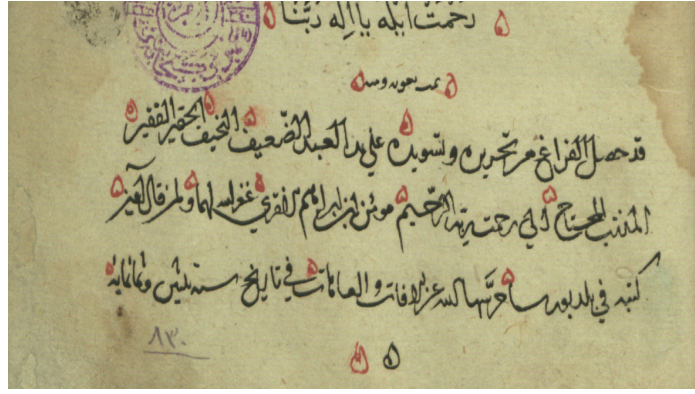 رحمت الله يا اله ربنا
تمت بعون
قد حصل الفراغ من تحريره وتسويده علي يد العبد الضعيف النحيف الحقير الفقير
المذنب المحتاج الي رحمت ربه الرحيم موسي ابن ابراهيم غفر الله لهما ولمن قال آمين
كتبه في بلد حرسها الله عن الافات والعاهات في تاريخ سنه ثلثين وثمانمايه
٨٣٠